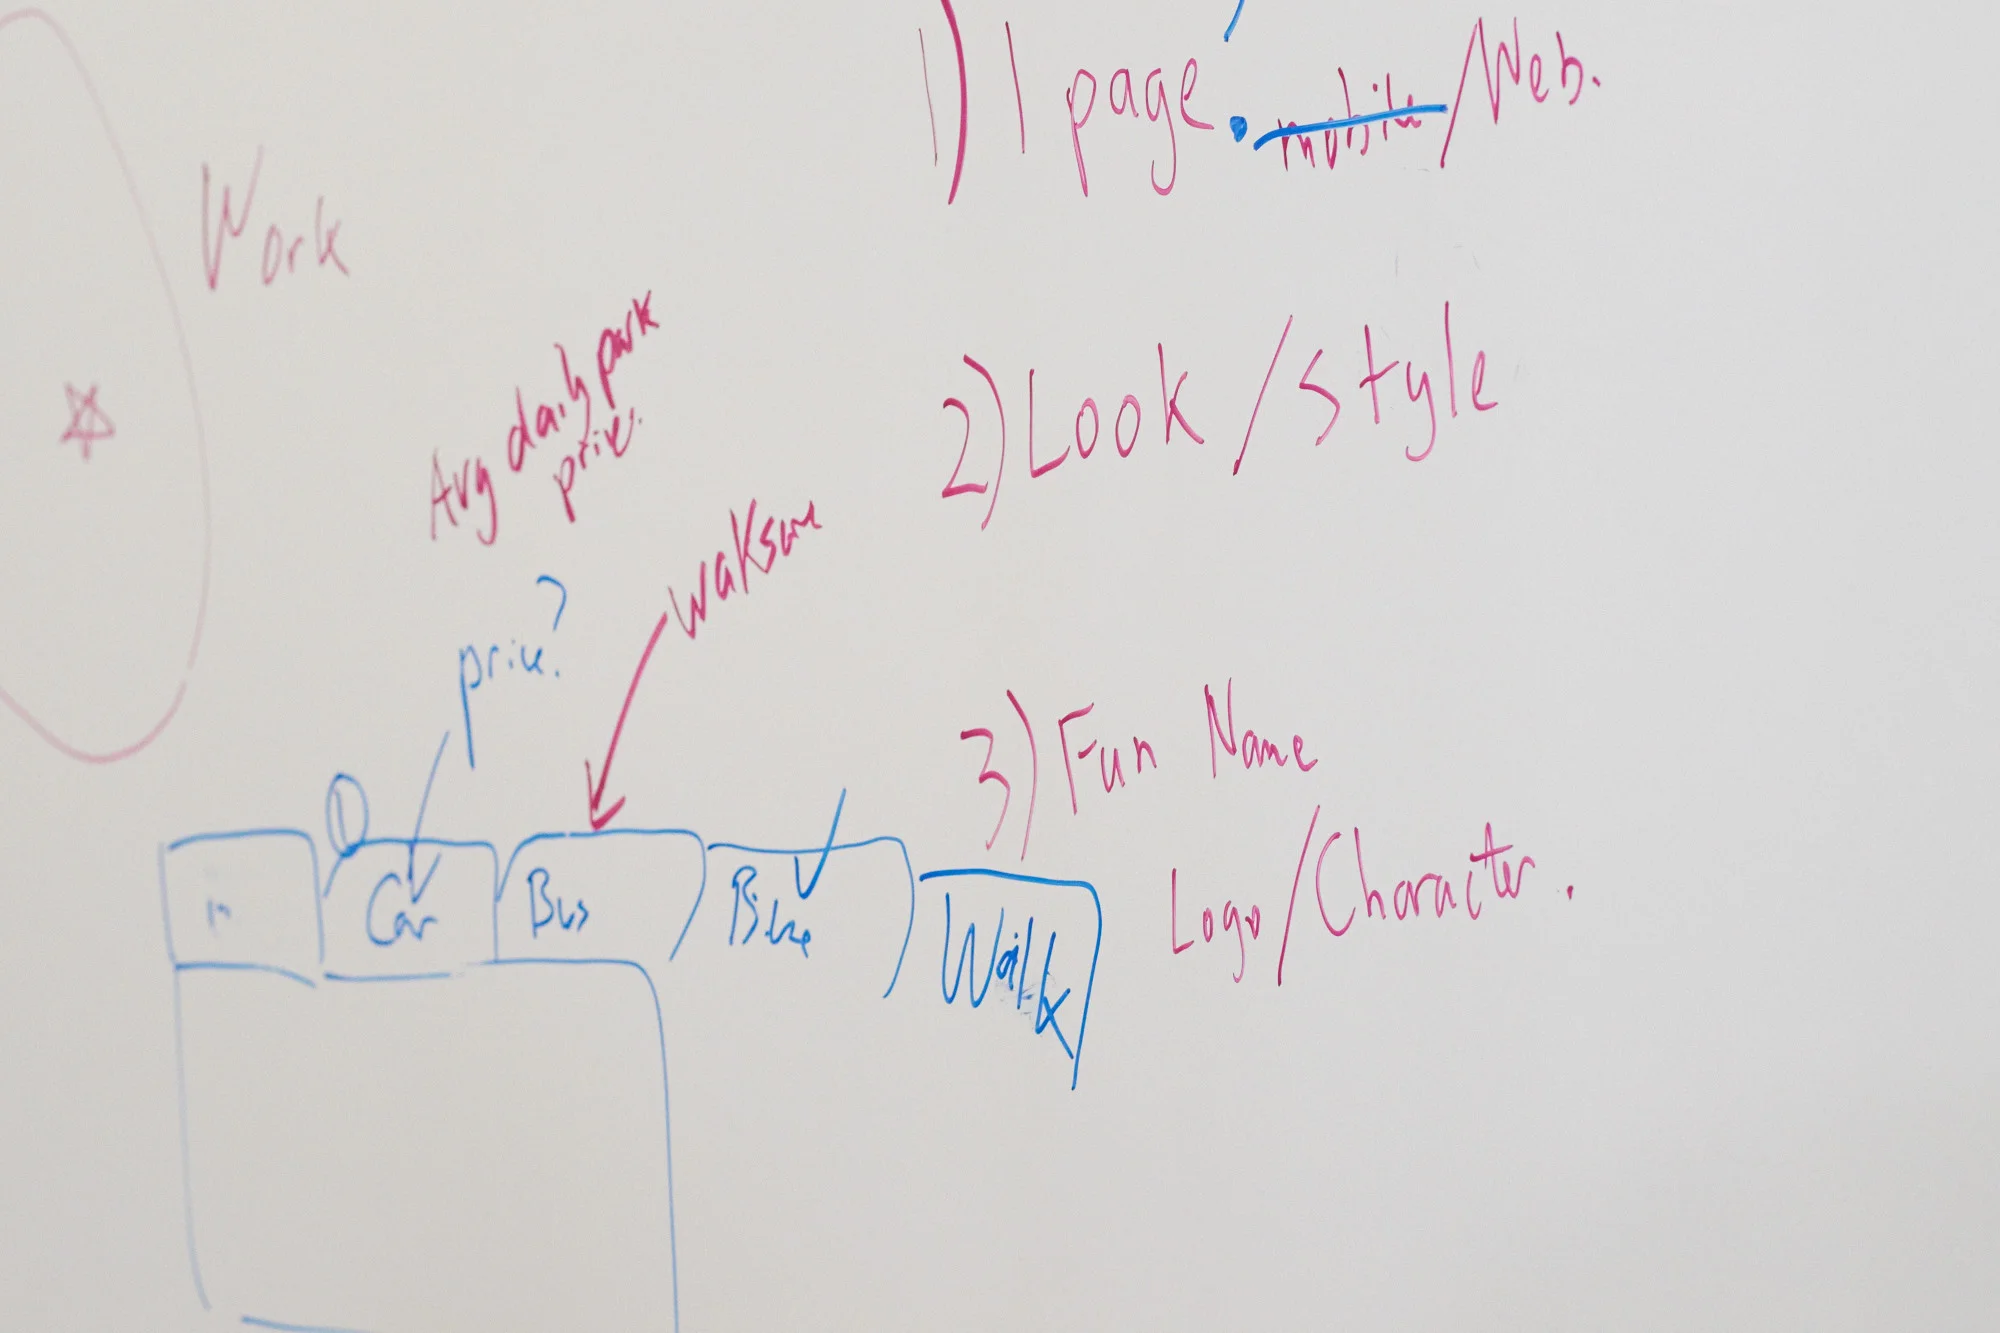 1) 1 page. mobile/Web.
Work
2) Look/Style
Avg daily park
price.
price?
3) Fun Name
Logo/Character.
1
Car
Bus
Bike
Walk